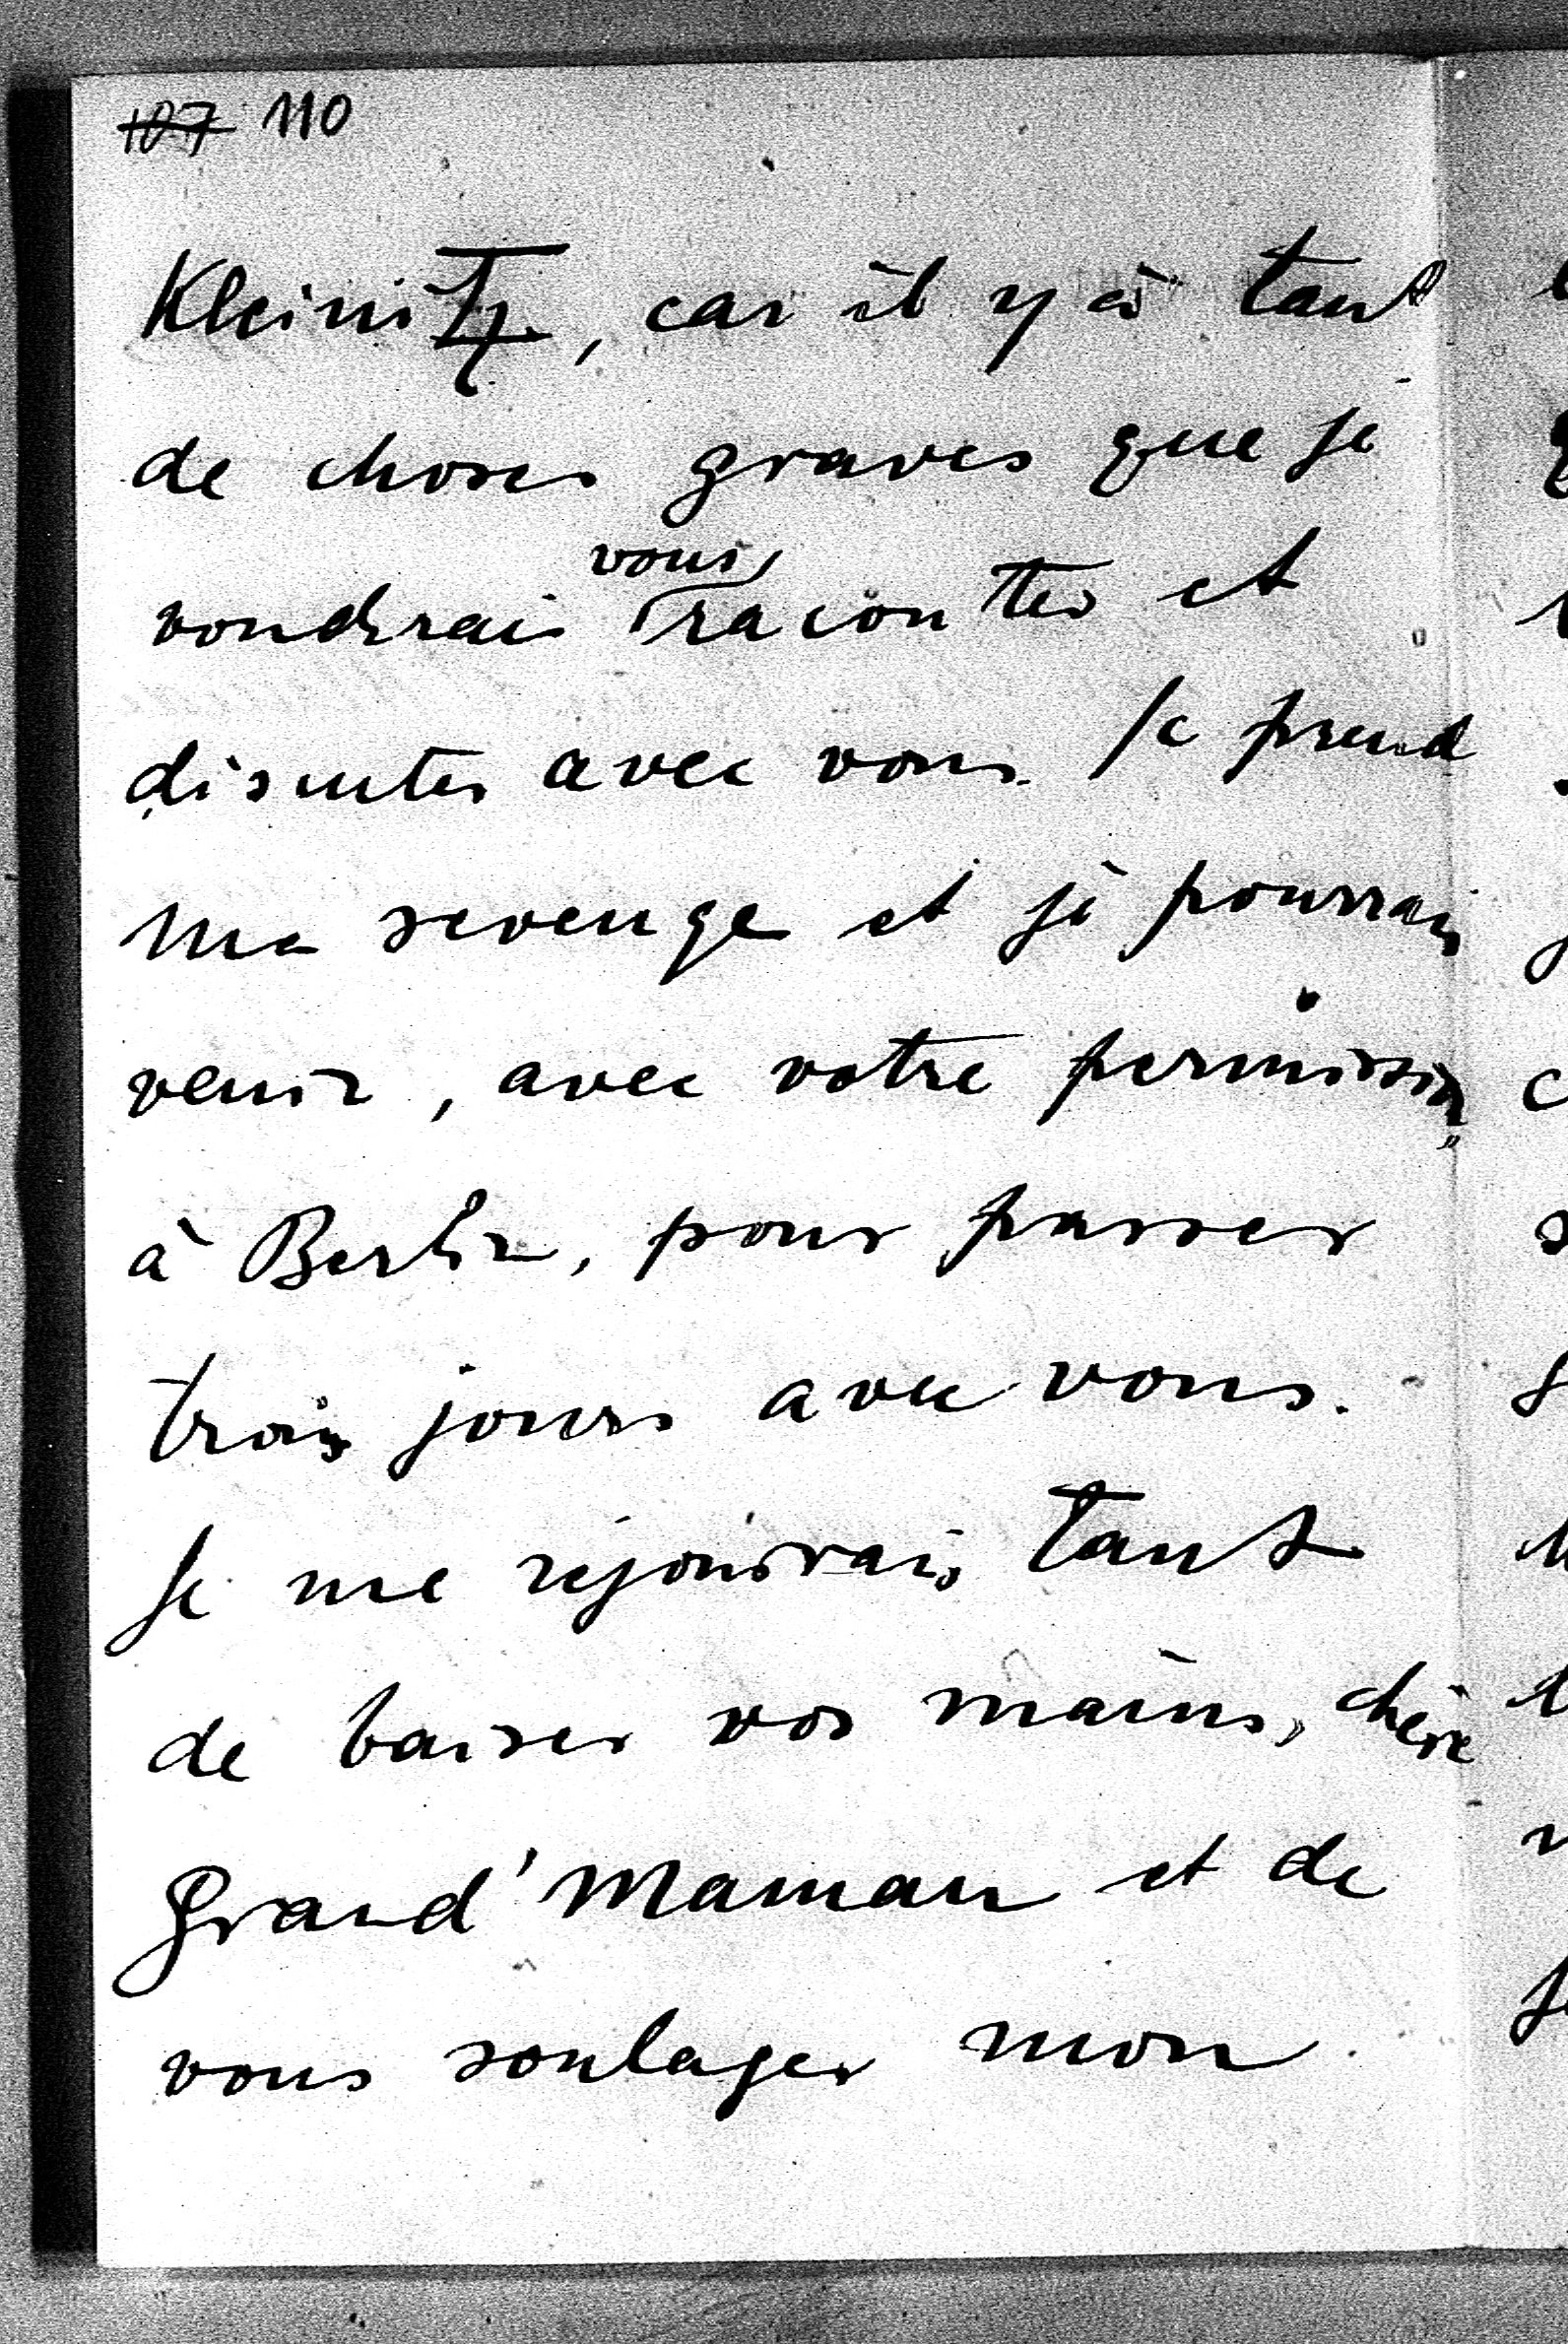 107 110
Kleinitz, car il y à tant
de choses graves que je
vous
voudrais raconter et
discuter avec vous. Je prend
ma revenge et je pourrais
venir, avec votre permission,
à Berlin, pour passer
trois jours avec vous.
Je me rejouirais tant
de baiser vos mains, chère
Grand'Maman et de
vous soulager mon